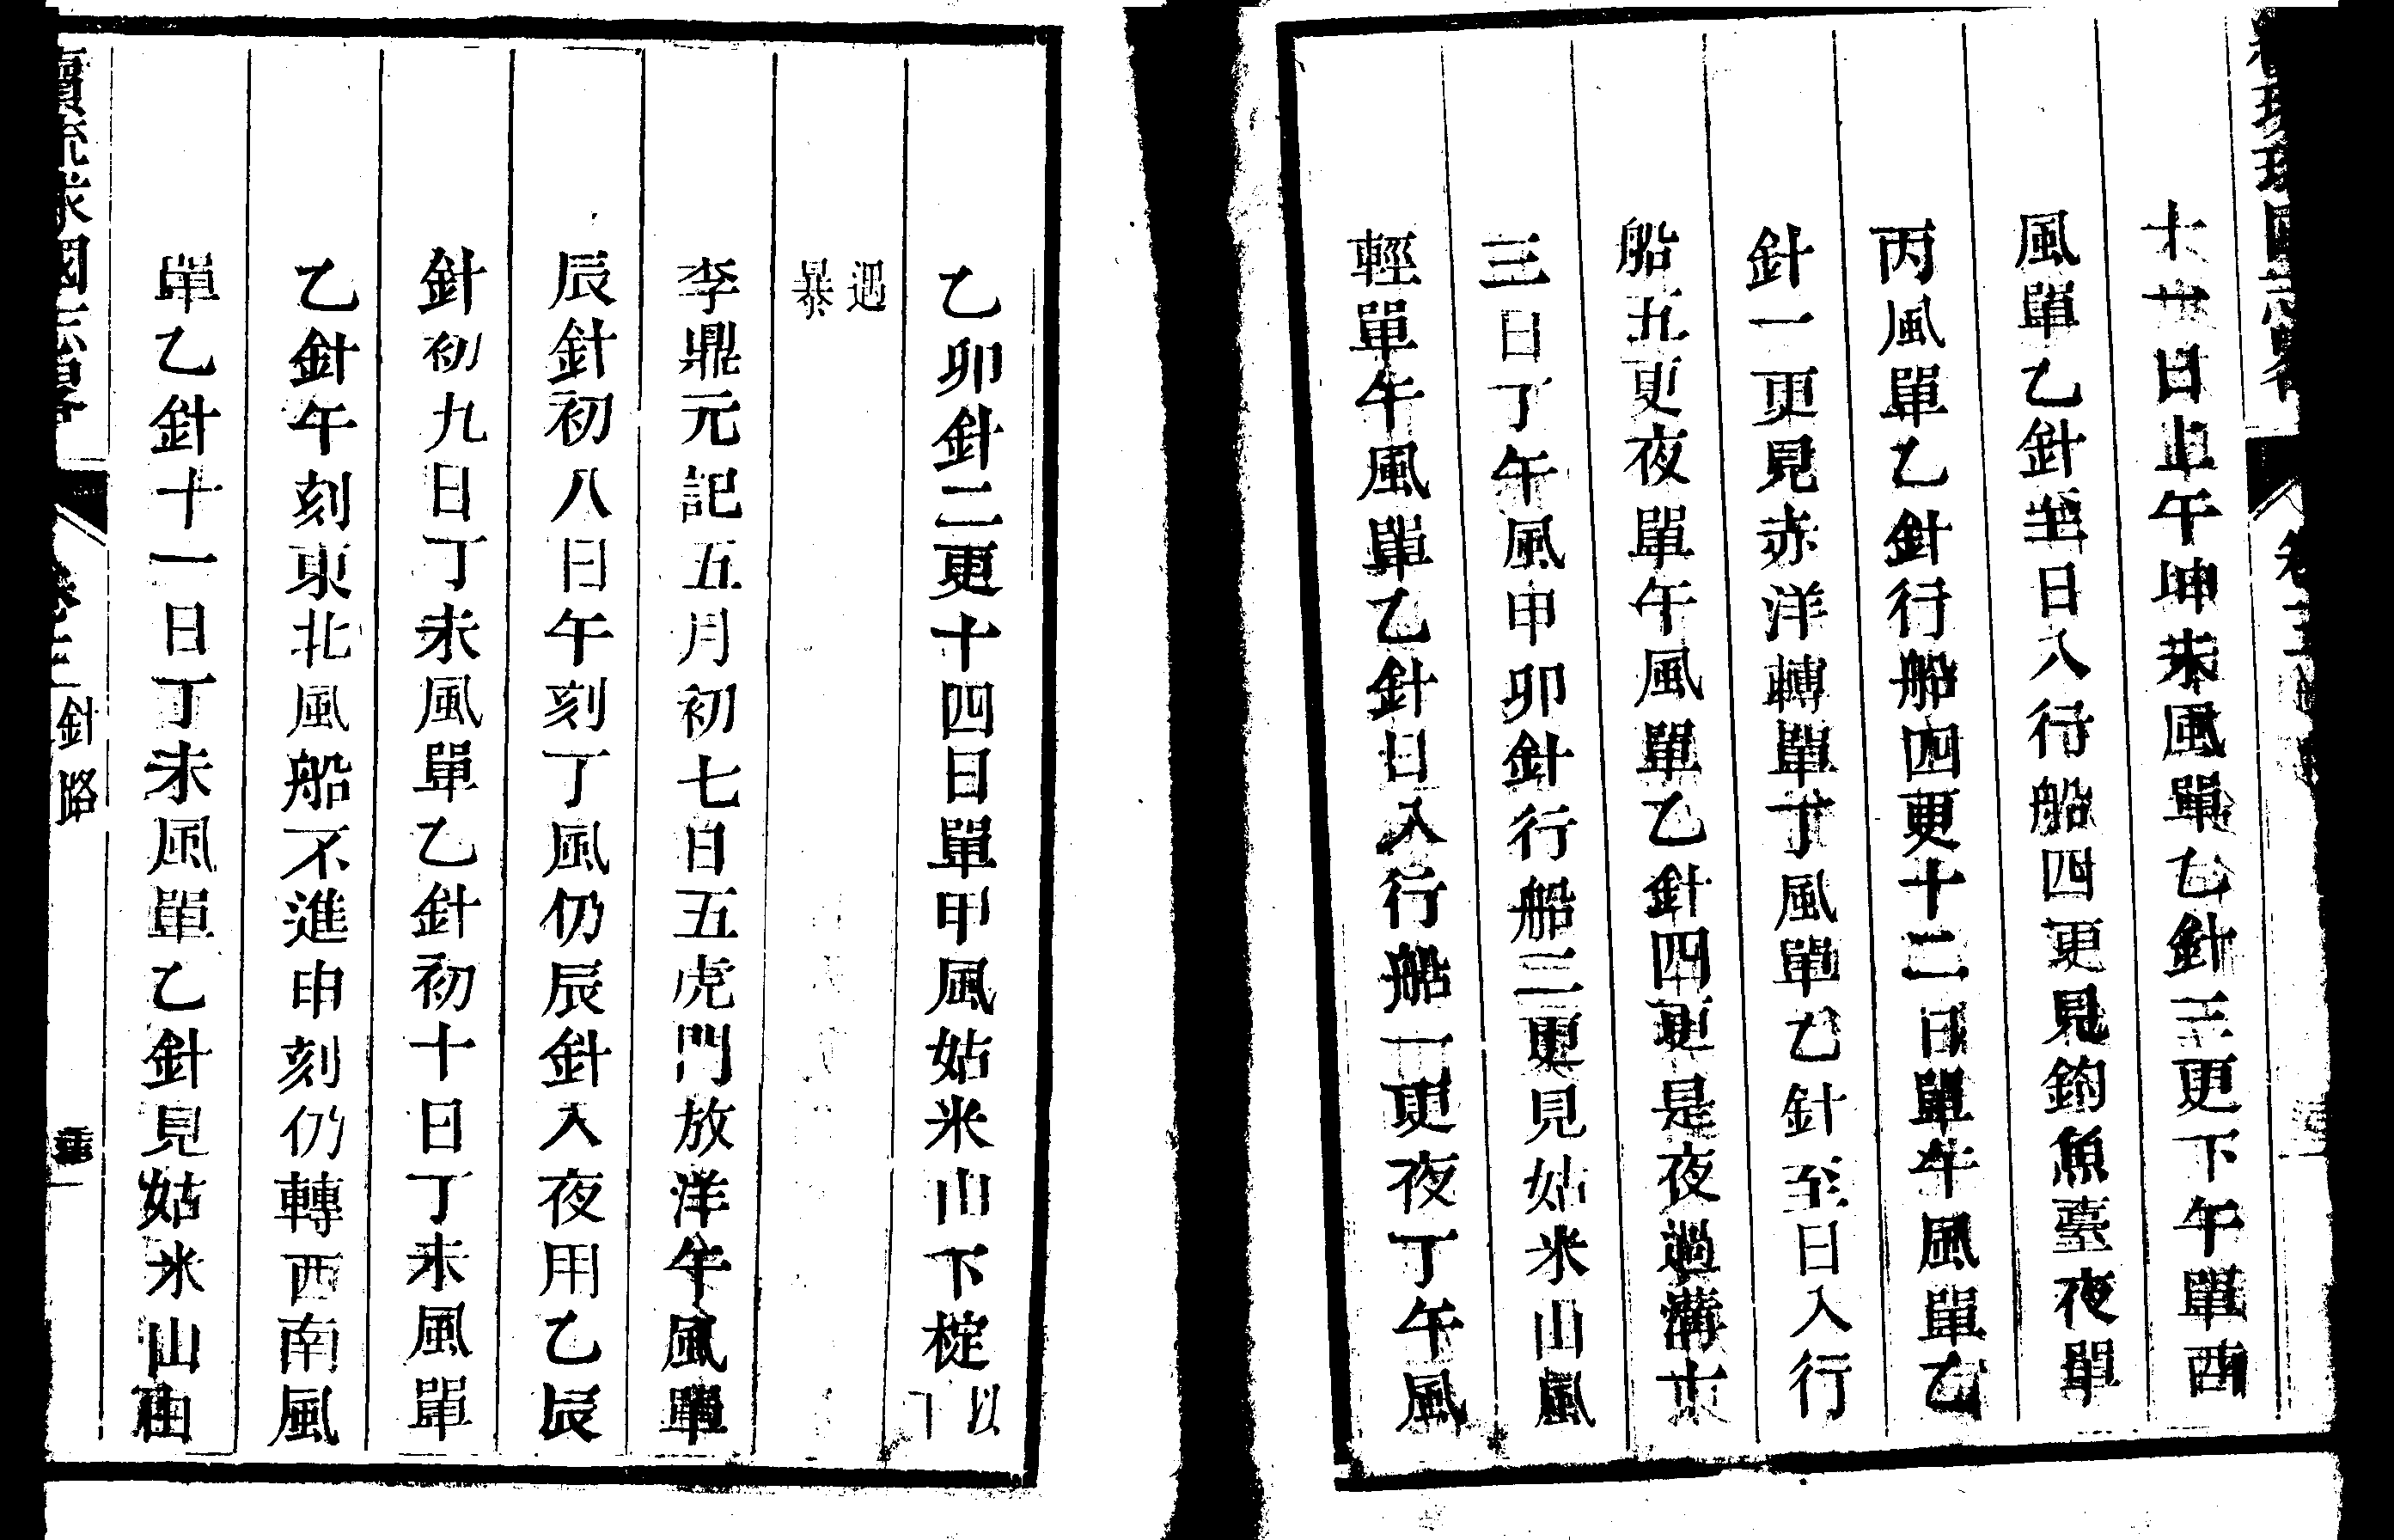 續琉球國志畧 卷三
十一日上午坤未風單乙針三更下午單酉
風單乙針至日入行船四更見釣魚臺夜單
丙風單乙針行船四更十二日單午風單乙
針一更見赤洋轉單丁風單乙針至日入行
船五更夜單午風單乙針四更是夜過溝十
三日丁午風甲卯針行船三更見姑米山風
輕單午風單乙針日入行船一更夜丁午風
乙卯針二更十四日單甲風姑米山下椗以下
遇暴
李鼎元記五月初七日五虎門放洋午風單
辰針初八日午刻丁風仍辰針入夜用乙辰
針初九日丁未風單乙針初十日丁未風單
乙針午刻東北風船不進申刻仍轉西南風
單乙針十一日丁未風單乙針見姑米山由
續琉球國志畧 卷三 針路